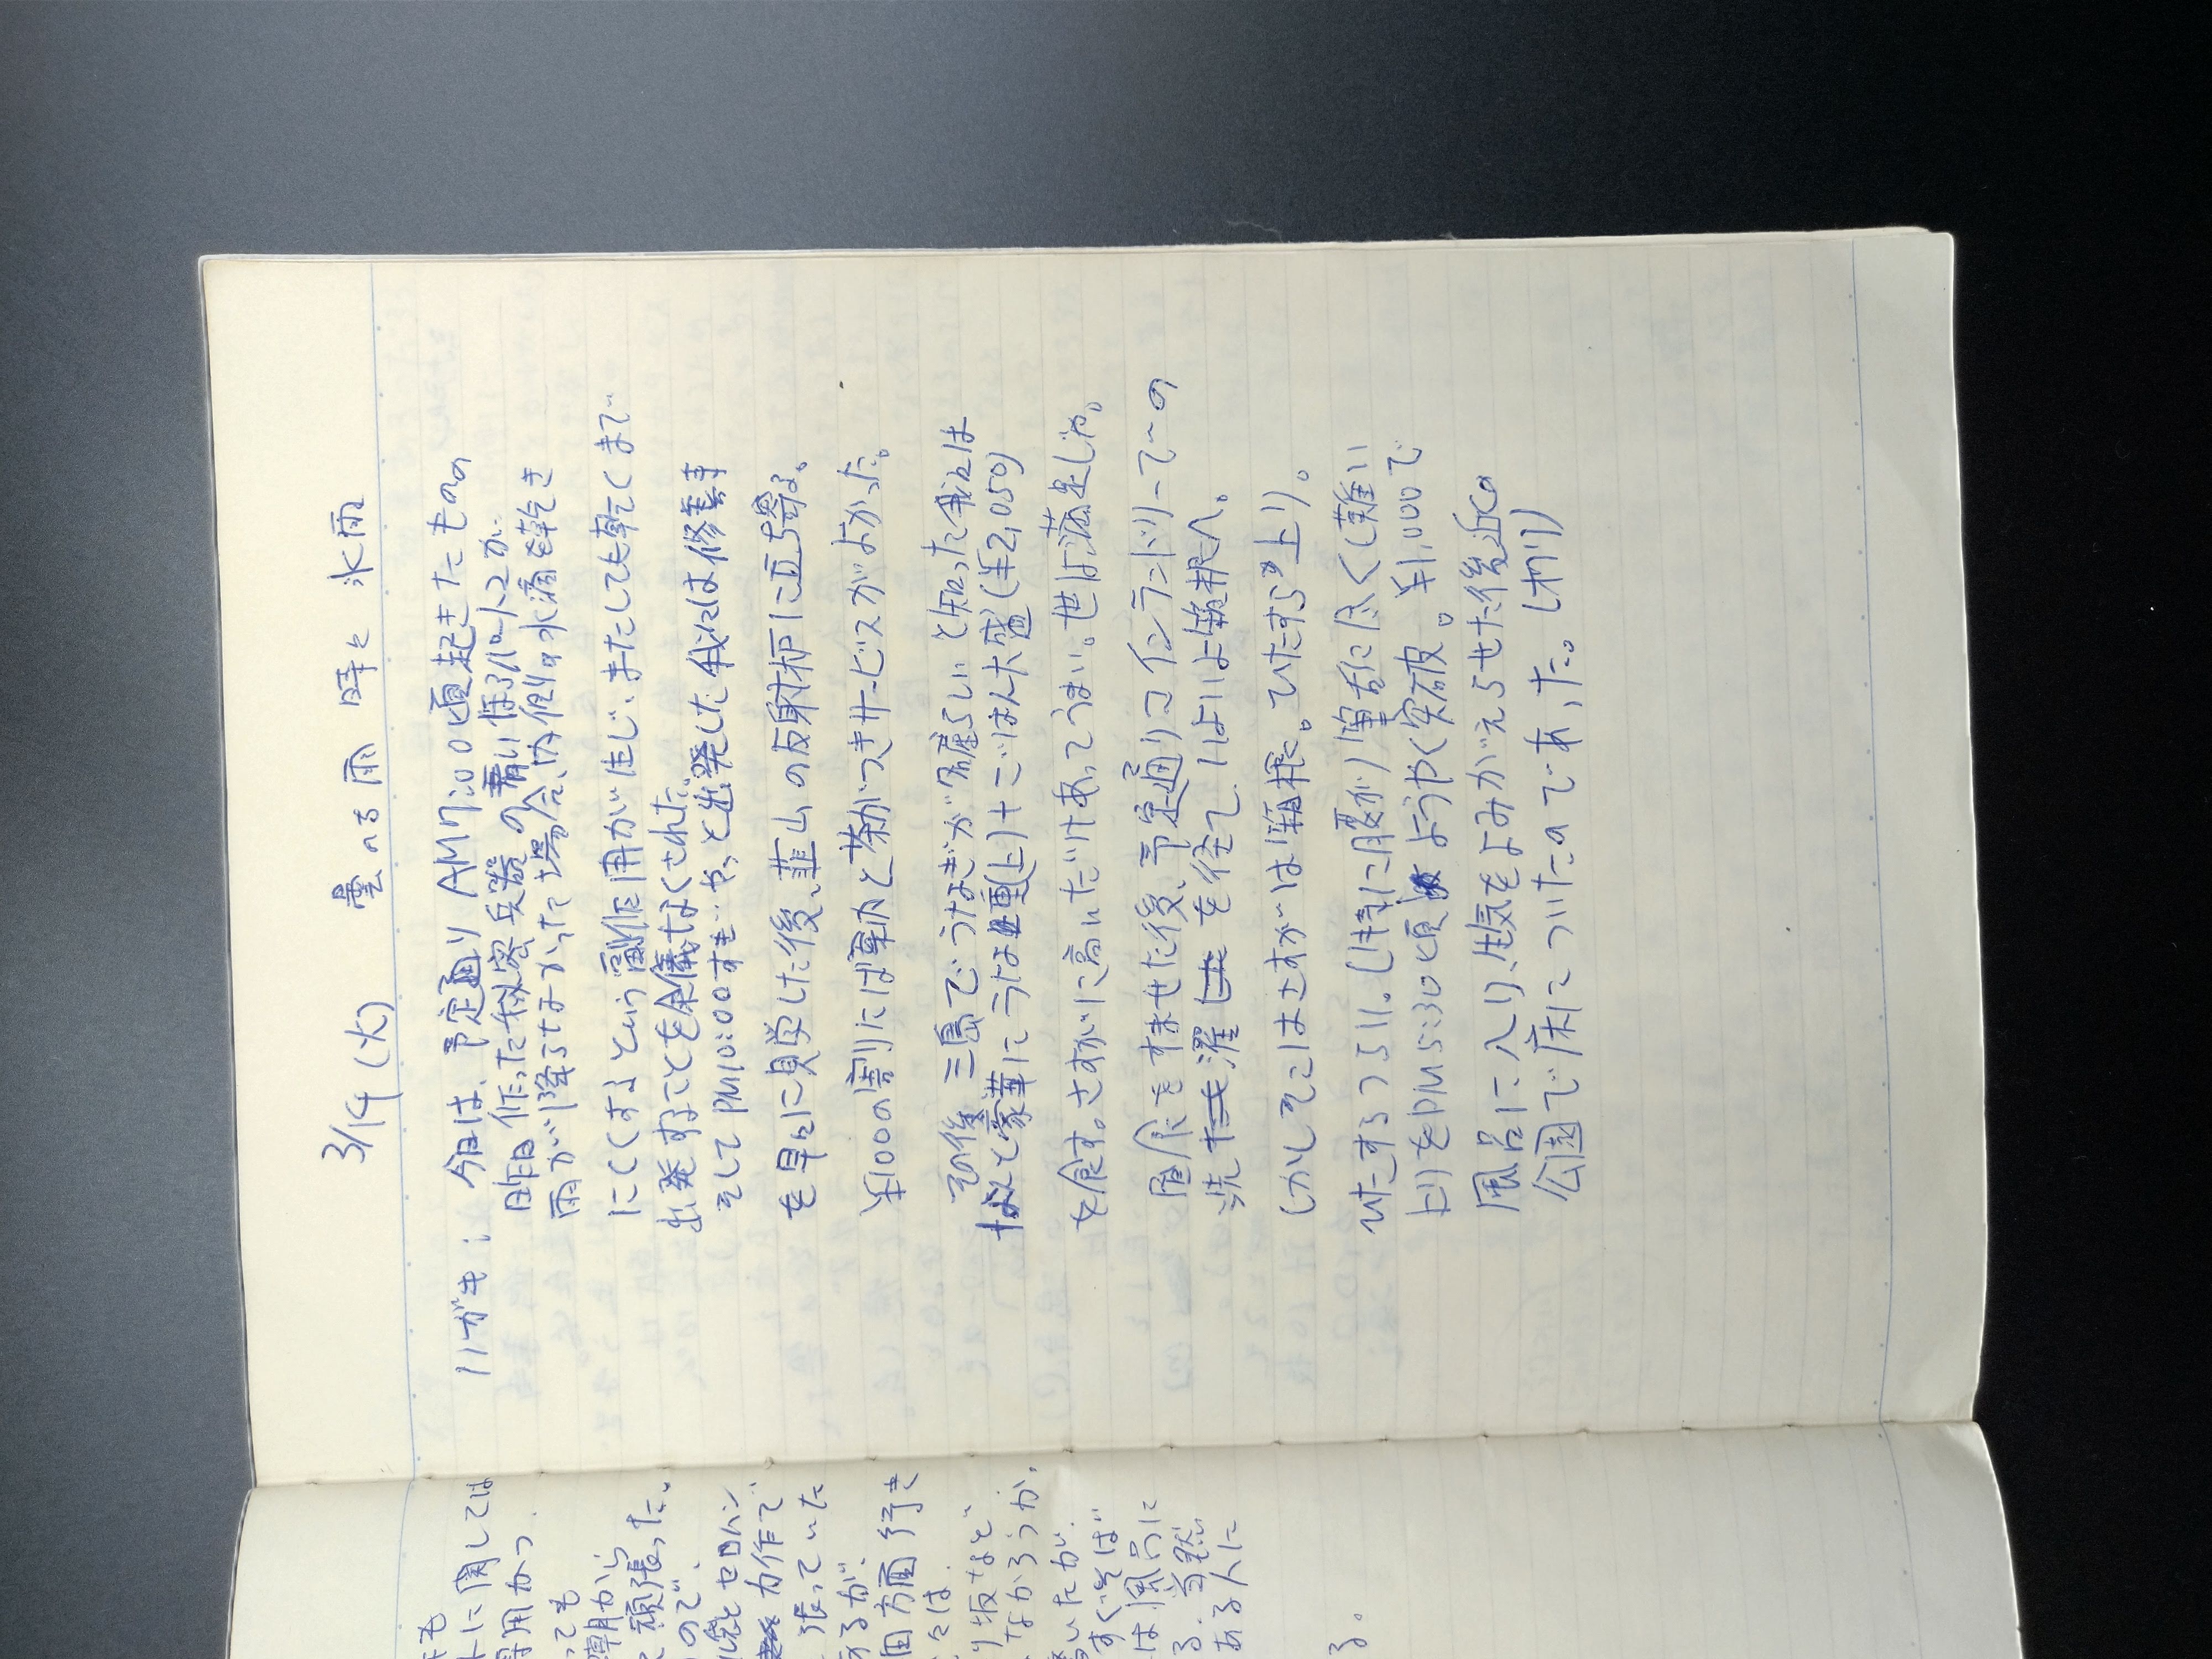 も
トに関しては
専用かつ.
っても
朝から
頑張った。
ので、
袋とセロハン
力作で
張っていた
あるが、
方面行き
々は.
り坂など
なかろうか.
いたが.
すぐそば
は風呂に
る.当然
ある人に
る。
3/14 (火) 曇のち雨 時々 氷雨
ハガキ: 今日は、予定通り AM7:00頃起きたものの
昨日作った秘密兵器の青い傘が
雨が降らなかった場合、内側の水滴を乾き
にくくするという副作用が生じ、またしても乾くまで
出発することを余儀なくされた。
そしてPM10:00すぎ、やっと出発した我々は修善寺
を早々に見学した後、韮山の反射炉に立ち寄る。
¥100の割には案内と茶がつきサービスがよかった。
その後三島でうなぎが名産らしいと知った我々は
なんと豪華にうな重(上)+ごはん大盛(¥2,050)
を食す。さすがに高いだけあってうまい。世は満足じゃ。
昼食をすませた後、予定通りコインランドリーでの
洗濯を経て、いよいよ箱根へ。
しかしそこはさすがは箱根。ひたすら上り。
ひたすらつらい。(特に腹が) 筆舌に尽くし難い
上りをPM5:30頃ようやく突破。¥1,000で
風呂に入り、生気をよみがえらせた後近くの
公園で床についたのであった。(村)